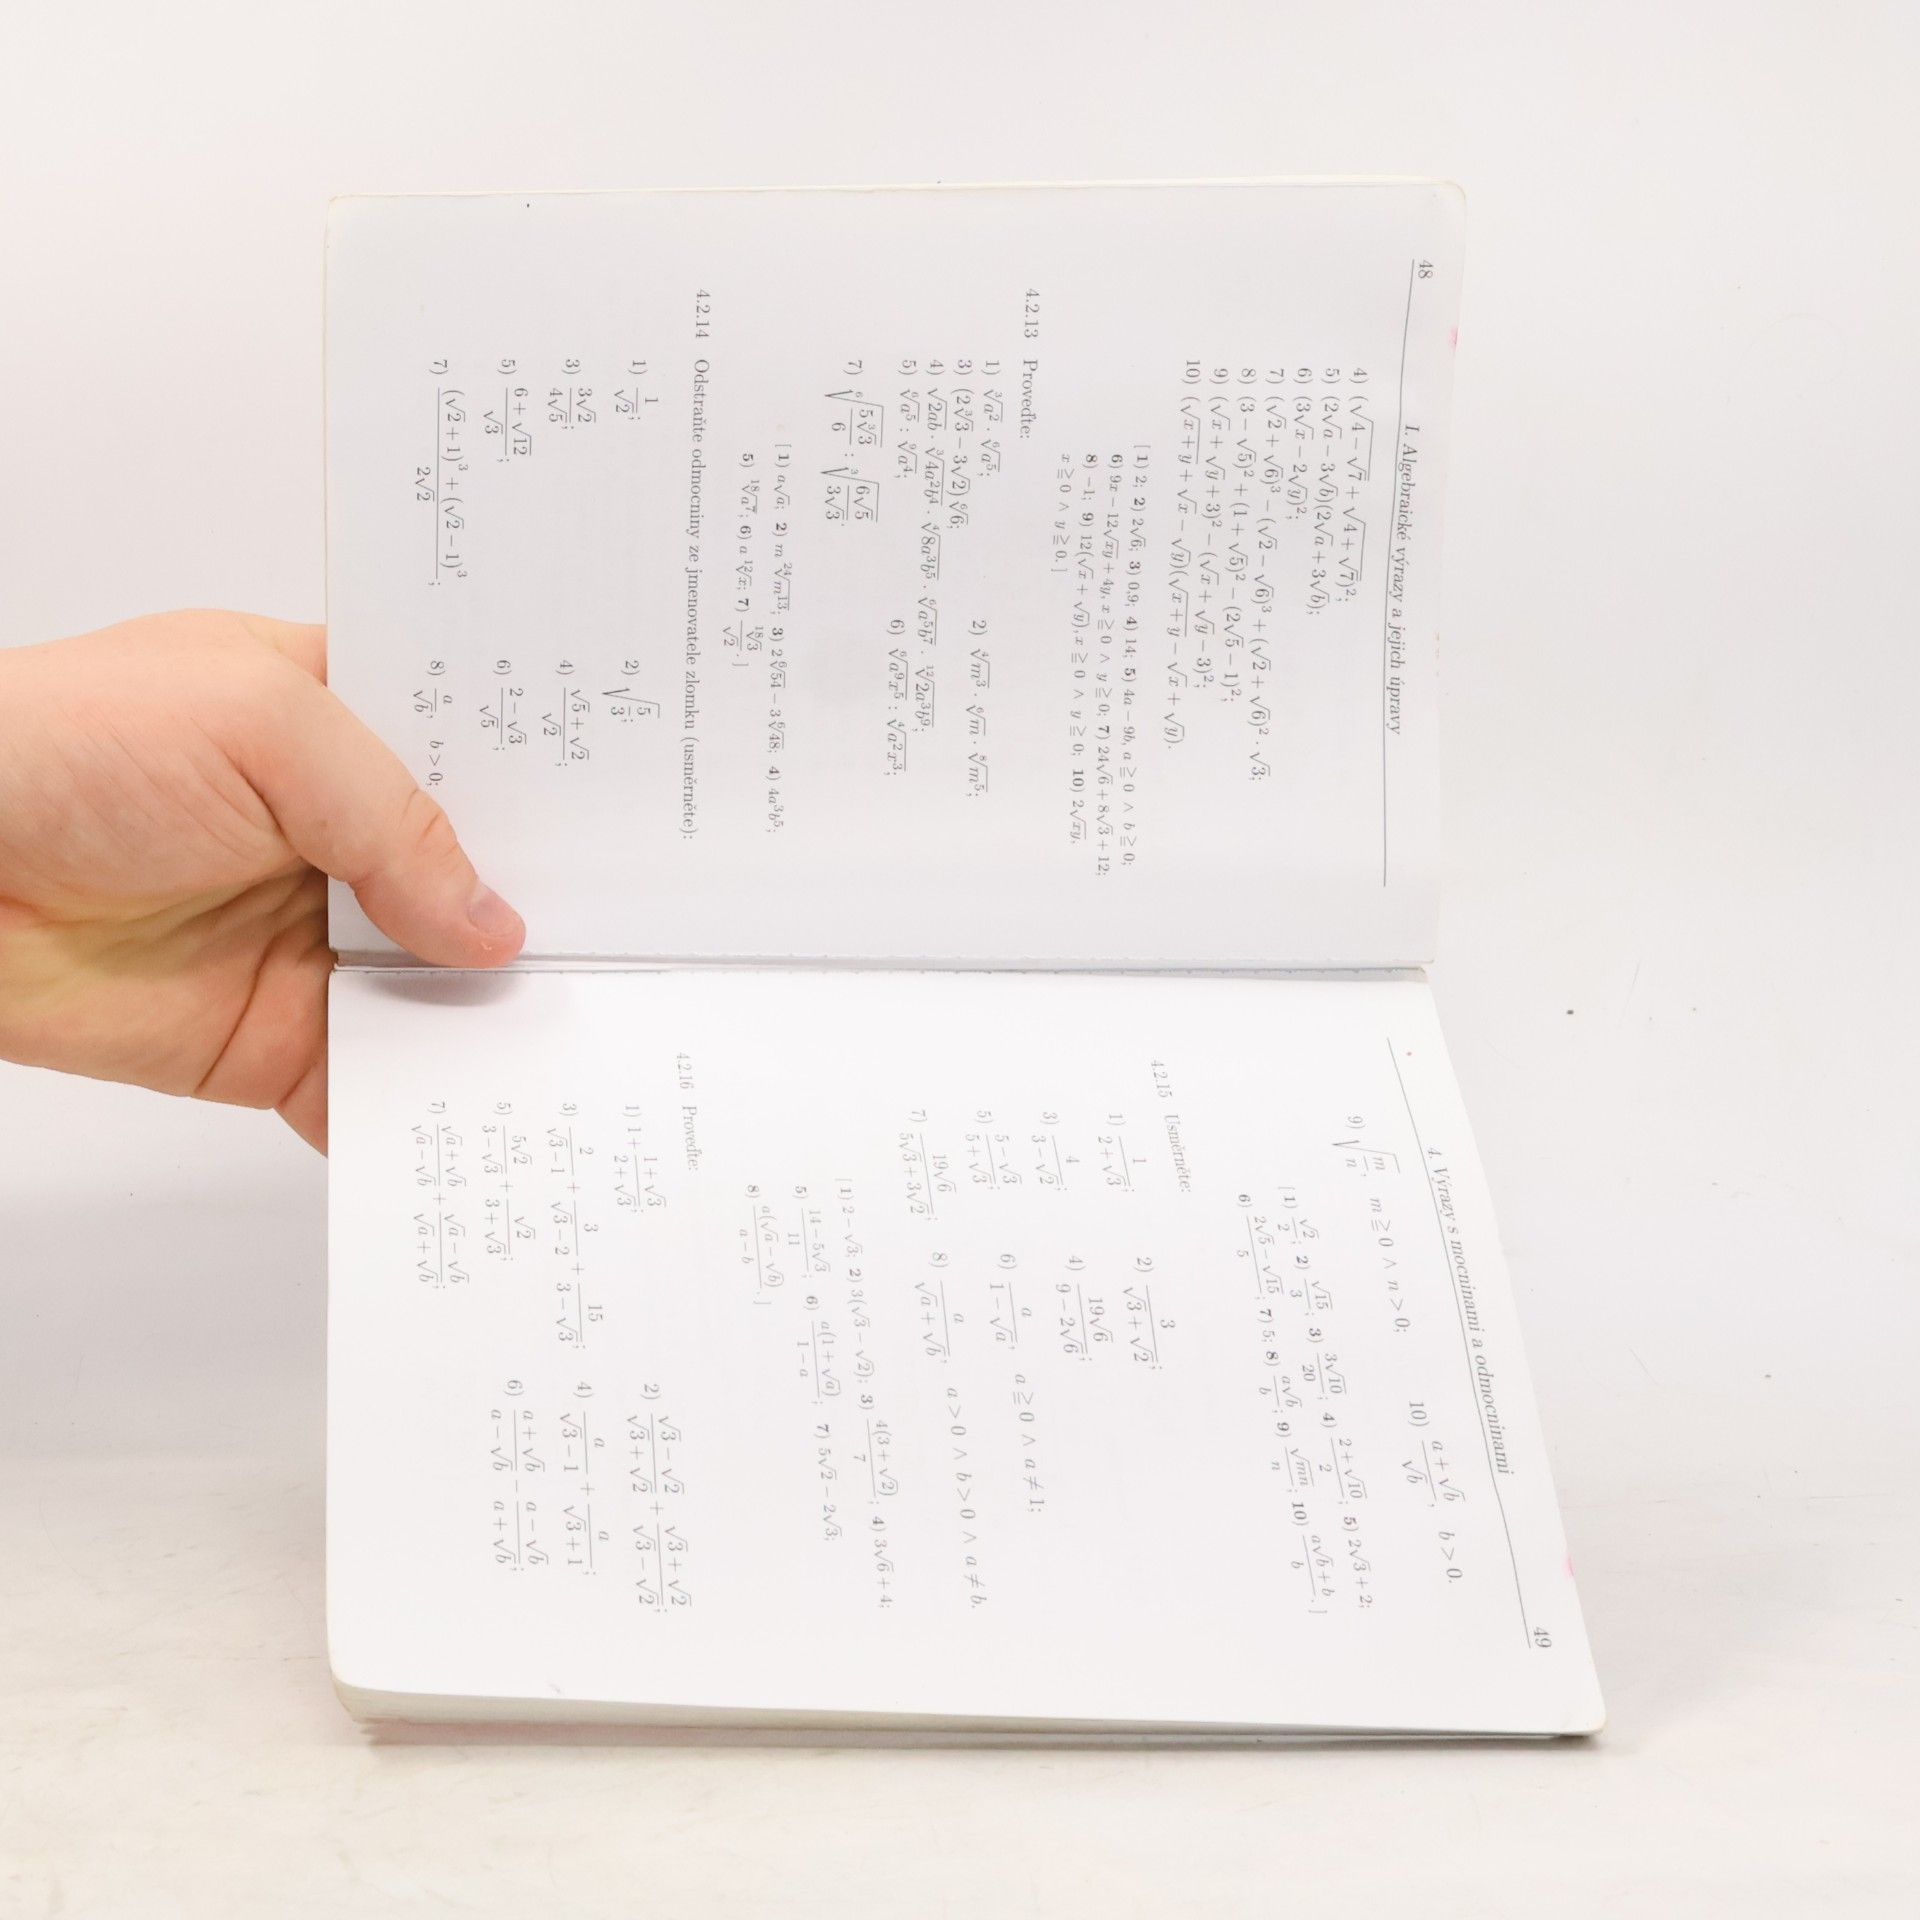 48
I. Algebraické výrazy a jejich úpravy
4) (√(4 − √7) + √(4 + √7))²;
5) (2√a − 3√b)(2√a + 3√b);
6) (3√x − 2√y)²;
7) (√2 + √6)³ − (√2 − √6)³ + (√2 + √6)² · √3;
8) (3 − √5)² + (1 + √5)² − (2√5 − 1)²;
9) (√x + √y + 3)² − (√x + √y − 3)²;
10) (√(x + y) + √x − √y)(√(x + y) − √x + √y).
[1) 2; 2) 2√6; 3) 0,9; 4) 14; 5) 4a − 9b, a ≧ 0 ∧ b ≧ 0;
6) 9x − 12√(xy) + 4y, x ≧ 0 ∧ y ≧ 0; 7) 24√6 + 8√3 + 12;
8) −1; 9) 12(√x + √y), x ≧ 0 ∧ y ≧ 0; 10) 2√(xy),
x ≧ 0 ∧ y ≧ 0.]
4.2.13 Proveďte:
1) ∛(a²) · ⁶√(a⁵); 2) ⁴√(m³) · ⁶√m · ⁸√(m⁵);
3) (2∛3 − 3√2) ⁶√6;
4) √(2ab) · ∛(4a²b⁴) · ⁴√(8a³b⁵) · ⁶√(a⁵b⁷) · ¹²√(2a³b⁹);
5) ⁶√(a⁵) : ⁹√(a⁴); 6) ⁶√(a⁹x⁵) : ⁴√(a²x³);
7) ⁶√(5∛3 / 6) : ∛(6√5 / 3√3).
[1) a√a; 2) m ²⁴√(m¹³); 3) 2 ⁶√54 − 3 ⁶√48; 4) 4a³b⁵;
5) ¹⁸√(a⁷); 6) a ¹²√x; 7) ¹⁸√3 / √2.]
4.2.14 Odstraňte odmocniny ze jmenovatele zlomku (usměrněte):
1) 1 / √2; 2) √(5 / 3);
3) 3√2 / 4√5; 4) (√5 + √2) / √2;
5) (6 + √12) / √3; 6) (2 − √3) / √5;
7) ((√2 + 1)³ + (√2 − 1)³) / 2√2; 8) a / √b, b > 0;
4. Výrazy s mocninami a odmocninami
49
9) √(m / n), m ≧ 0 ∧ n > 0; 10) (a + √b) / √b, b > 0.
[1) √2 / 2; 2) √15 / 3; 3) 3√10 / 20; 4) (2 + √10) / 2; 5) 2√3 + 2;
6) (2√5 − √15) / 5; 7) 5; 8) a√b / b; 9) √(mn) / n; 10) (a√b + b) / b.]
4.2.15 Usměrněte:
1) 1 / (2 + √3); 2) 3 / (√3 + √2);
3) 4 / (3 − √2); 4) 19√6 / (9 − 2√6);
5) (5 − √3) / (5 + √3); 6) a / (1 − √a), a ≧ 0 ∧ a ≠ 1;
7) 19√6 / (5√3 + 3√2); 8) a / (√a + √b), a > 0 ∧ b > 0 ∧ a ≠ b.
[1) 2 − √3; 2) 3(√3 − √2); 3) 4(3 + √2) / 7; 4) 3√6 + 4;
5) (14 − 5√3) / 11; 6) a(1 + √a) / (1 − a); 7) 5√2 − 2√3;
8) a(√a − √b) / (a − b).]
4.2.16 Proveďte:
1) 1 + (1 + √3) / (2 + √3); 2) (√3 − √2) / (√3 + √2) + (√3 + √2) / (√3 − √2);
3) 2 / (√3 − 1) + 3 / (√3 − 2) + 15 / (3 − √3); 4) a / (√3 − 1) + a / (√3 + 1);
5) 5√2 / (3 − √3) + √2 / (3 + √3); 6) (a + √b) / (a − √b) − (a − √b) / (a + √b);
7) (√a + √b) / (√a − √b) + (√a − √b) / (√a + √b);